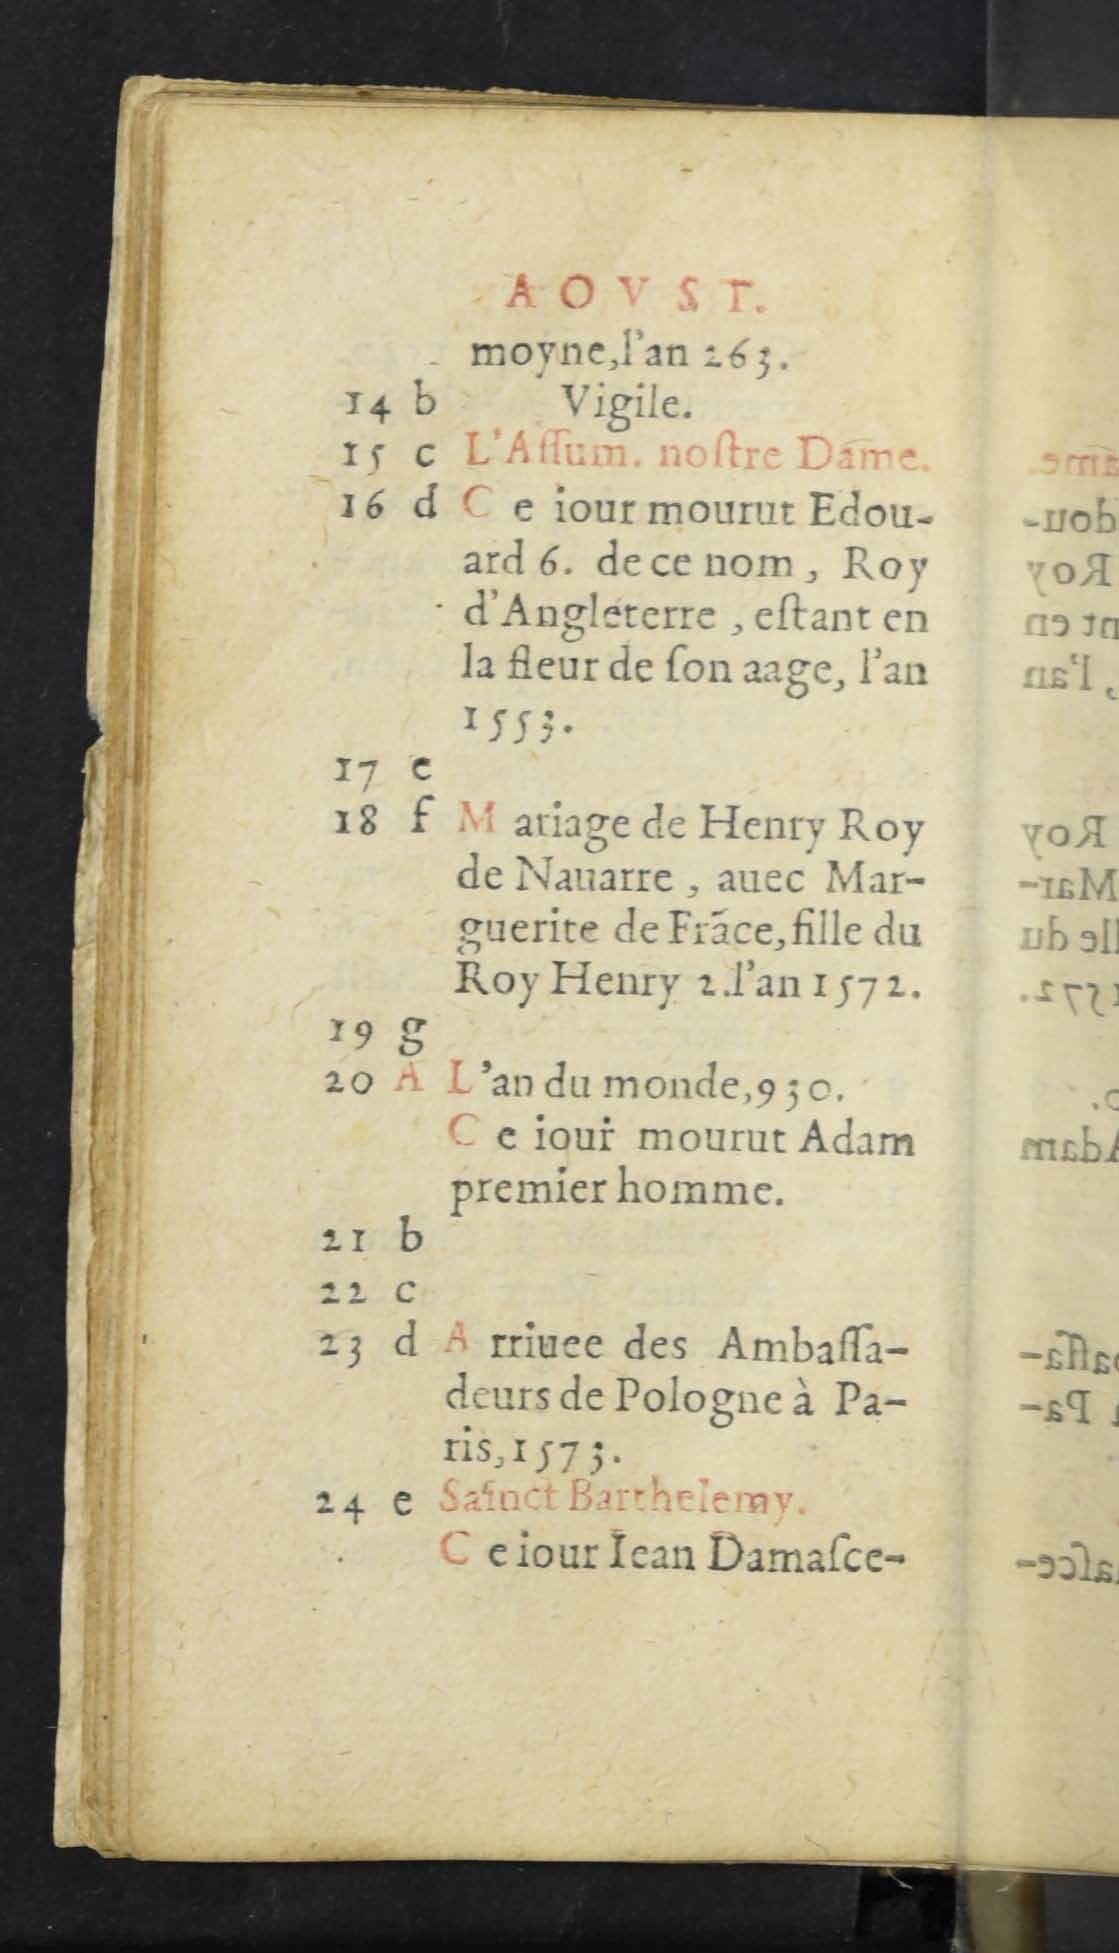 AOVST.
moyne,l'an 263.
14 b Vigile.
15 c L'Aſſum. noſtre Dame.
16 d Ce iour mourut Edou-
ard 6. de ce nom, Roy
d'Angleterre, eſtant en
la fleur de ſon aage, l'an
1553.
17 e
18 f Mariage de Henry Roy
de Nauarre, auec Mar-
guerite de Frãce, fille du
Roy Henry 2.l'an 1572.
19 g
20 A L'an du monde,930.
Ce iour mourut Adam
premier homme.
21 b
22 c
23 d Arriuee des Ambaſſa-
deurs de Pologne à Pa-
ris,1573.
24 e Sainct Barthelemy.
Ce iour Iean Damaſce-